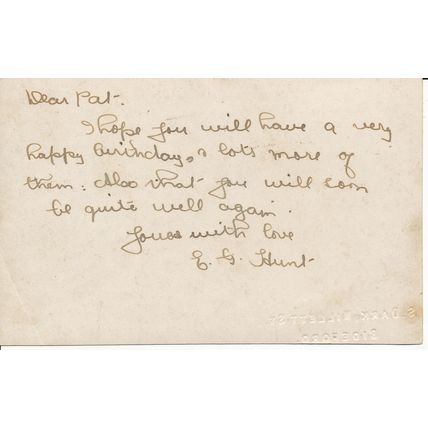 Dear Pat.
I hope you will have a very
happy birthday, & lots more of
them. Also that you will soon
be quite well again.
Yours with love
E. G. Hunt
BIDEFORD.